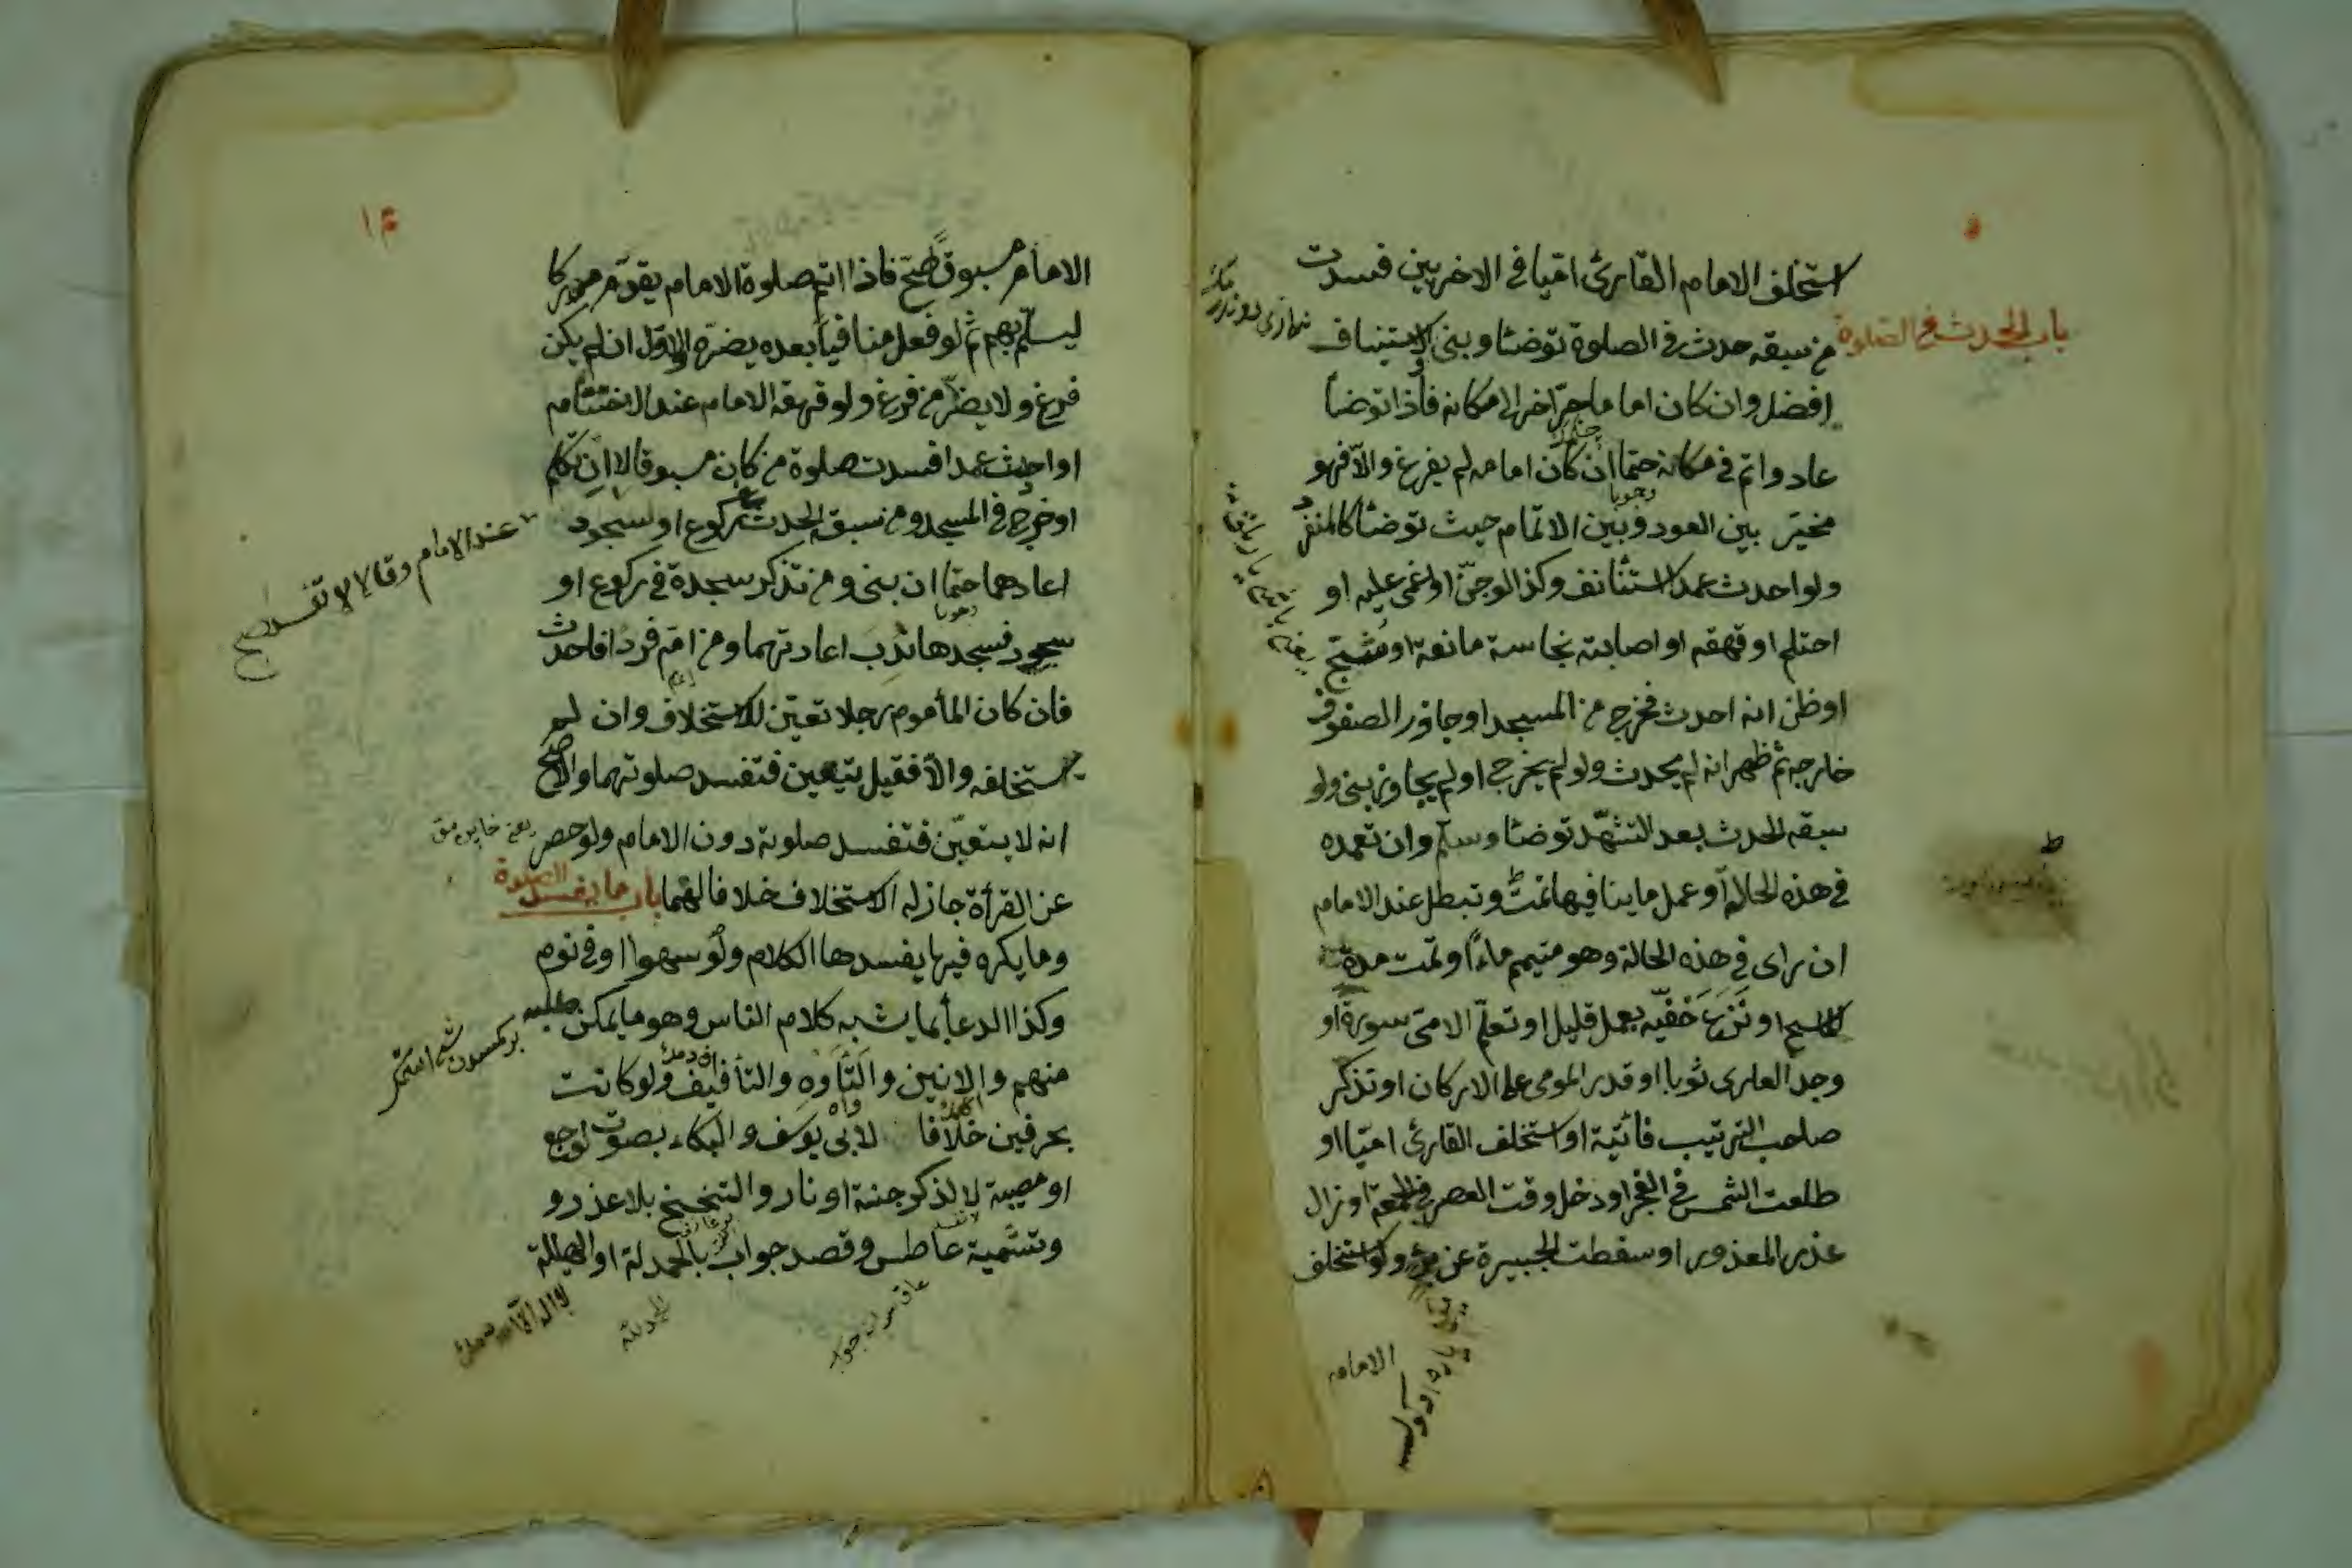 استخلف الامام القارئ اميا في الاخريين فسدت
باب الحدث في الصلوة
من سبقه حدث في الصلوة توضأ وبنى والاستيناف
افضل وان كان اماما جر آخر الى مكانه فاذا توضأ
عاد واتم في مكانه حتما ان كان امامه لم يفرغ والا فهو
مخير بين العود وبين الاتمام حيث توضأ كالمنفرد
ولو احدث عمدا استأنف وكذا لو جن او اغمى عليه او
احتلم او قهقه او اصابته نجاسة مانعة او شج
او ظن انه احدث فخرج من المسجد او جاوز الصفوف
خارجه ثم ظهر انه لم يحدث ولو لم يخرج او لم يجاوز بنى ولو
سبقه الحدث بعد التشهد توضأ وسلم وان تعمده
في هذه الحالة او عمل ما ينافيها تمت وتبطل عند الامام
ان راى في هذه الحالة وهو متيمم ماء او تمت مدة
المسح او نزع خفيه بعمل قليل او تعلم الامى سورة او
وجد العارى ثوبا او قدر المومى على الاركان او تذكر
صاحب الترتيب فائتة او استخلف القارئ اميا او
طلعت الشمس في الفجر او دخل وقت العصر في الجمعة او زال
عذر المعذور او سقطت الجبيرة عن برء ولو استخلف
الامام
۱۴
الامام مسبوقا صح فاذا اتم صلوة الامام يقدم مدركا
ليسلم بهم ثم لو فعل منافيا بعده يضره والاول ان لم يكن
فرغ ولا يضر من فرغ ولو قهقه الامام عند الاختتام
او احدث عمدا فسدت صلوة من كان مسبوقا لا ان تكلم
او خرج في المسجد ومن سبقه الحدث في ركوع او سجود
عند الامام وقالا لا تفسد
اعادهما حتما ان بنى ومن تذكر سجدة في ركوع او
سجود فسجدها ندب اعادتهما ومن ام فردا فاحدث
فان كان المأموم رجلا تعين للاستخلاف وان لم
يستخلفه والا فقيل يتعين فتفسد صلوتهما والاصح
انه لا يتعين فتفسد صلوته دون الامام ولو حصر
عن القرأة جاز له الاستخلاف خلافا لهما باب ما يفسد الصلوة
وما يكره فيها يفسدها الكلام ولو سهوا او في نوم
وكذا الدعا بما يشبه كلام الناس وهو ما يمكن طلبه
منهم والانين والتأوه والتأفيف ولو كانت
بحرفين خلافا لابى يوسف والبكاء بصوت لوجع
او مصيبة لا لذكر جنة او نار والتنحنح بلا عذر و
وتشميت عاطس وقصد جواب بالحمدلة او الهيللة
الحمد لله
لا اله الا الله